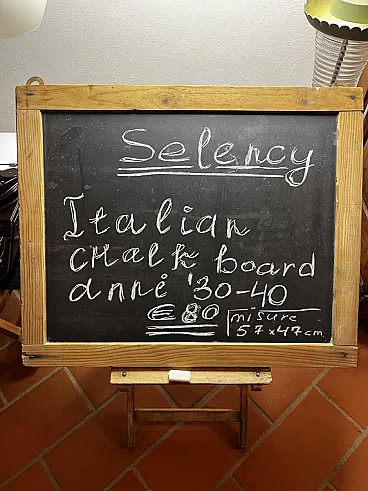 Selency
Italian
CHalk board
anni '30-40
€ 80
misure
57x47 cm